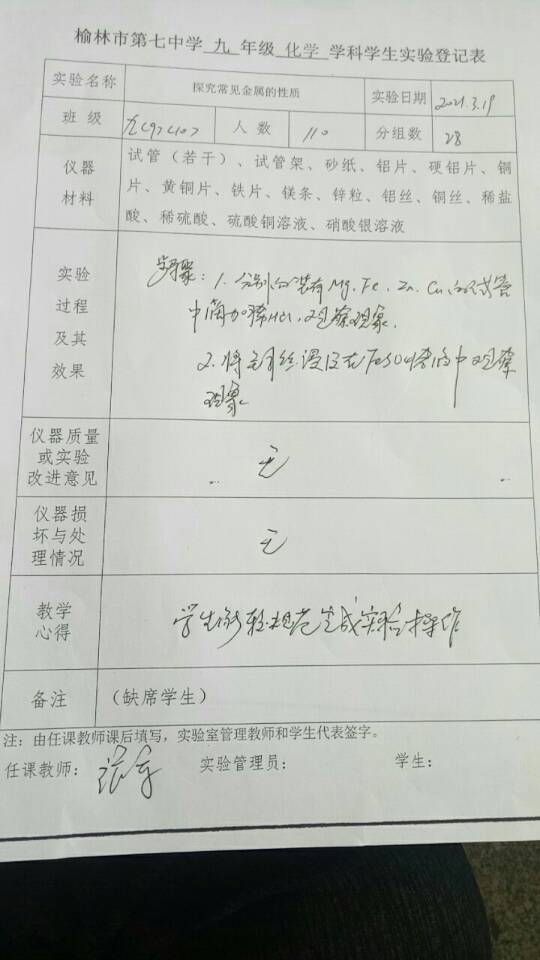 榆林市第七中学 九 年级 化学 学科学生实验登记表
实验名称 探究常见金属的性质 实验日期 2021.3.19
班 级 九(9)(10) 人 数 110 分组数 28
仪器材料
试管（若干）、试管架、砂纸、铝片、硬铝片、铜
片、黄铜片、铁片、镁条、锌粒、铝丝、铜丝、稀盐
酸、稀硫酸、硫酸铜溶液、硝酸银溶液
实验
过程
及其
效果
步骤：1. 分别向装有Mg、Fe、Zn、Cu的试管
中滴加稀HCl，观察现象。
2. 将 丝浸没在 SO4溶液中观察
现象
仪器质量
或实验
改进意见
无
仪器损
坏与处
理情况
无
教学
心得
学生能够规范完成实验操作
备注 （缺席学生）
注：由任课教师课后填写，实验室管理教师和学生代表签字。
任课教师： 实验管理员： 学生：